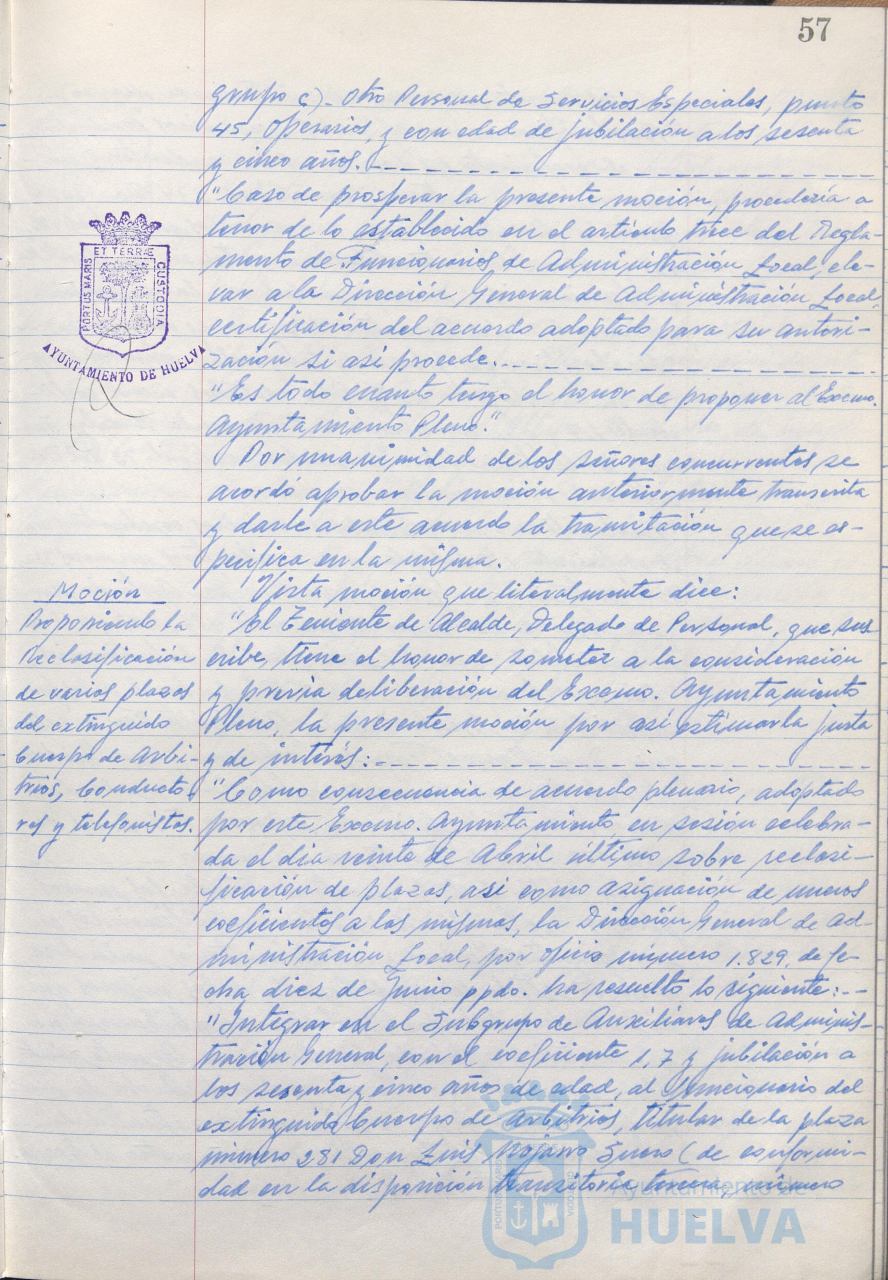 57
grupo c).- Otro Personal de Servicios Especiales, punto
45, Operarios, y con edad de jubilación a los sesenta
y cinco años.
"Caso de prosperar la presente moción, procedería a
tenor de lo establecido en el artículo trece del Regla-
mento de Funcionarios de Administración Local, ele-
var a la Dirección General de Administración Local,
certificación del acuerdo adoptado para su autori-
zación si asi procede.
"Es todo cuanto tengo el honor de proponer al Excmo.
Ayuntamiento Pleno."
Por unanimidad de los señores concurrentes se
acordó aprobar la moción anteriormente transcrita
y darle a este acuerdo la tramitación que se es-
pecifica en la misma.
PORTUS MARIS ET TERRÆ CUSTODIA
AYUNTAMIENTO DE HUELVA
Moción
Proponiendo la
Reclasificación
de varias plazas
del extinguido
Cuerpo de Arbi-
trios, Conducto-
res y telefonistas.
Vista moción que literalmente dice:
"El Teniente de Alcalde, Delegado de Personal, que sus
cribe, tiene el honor de someter a la consideración
y previa deliberación del Excmo. Ayuntamiento
Pleno, la presente moción por asi estimarla justa
y de interés:
"Como consecuencia de acuerdo plenario, adoptado
por este Excmo. Ayuntamiento, en sesión celebra-
da el dia veinte de Abril último sobre reclasi-
ficación de plazas, asi como asignación de nuevos
coeficientes a las mismas, la Dirección General de Ad-
ministración Local, por oficio número 1.829, de fe-
cha, diez de Junio ppdo. ha resuelto lo siguiente:
"Integrar en el Subgrupo de Auxiliares de Adminis-
tración General, con el coeficiente 1,7 y jubilación a
los sesenta y cinco años de edad, al funcionario del
extinguido Cuerpo de Arbitrios, titular de la plaza
número 281 Don Luis Mojarro Suero (de conformi-
dad en la disposición transitoria tercera, número
Ayuntamiento de
HUELVA